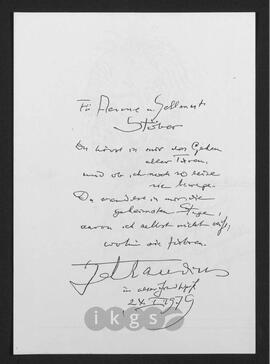 Für
Stöber
Du hörst in mir das Gehen
aller Türen,
und ob ich noch so leise
sie bewege.
Du wanderst in mir die
geheimsten Stege,
davon ich selbst nicht weiß,
wohin sie führen.
in
24. I. 1979
ikgs